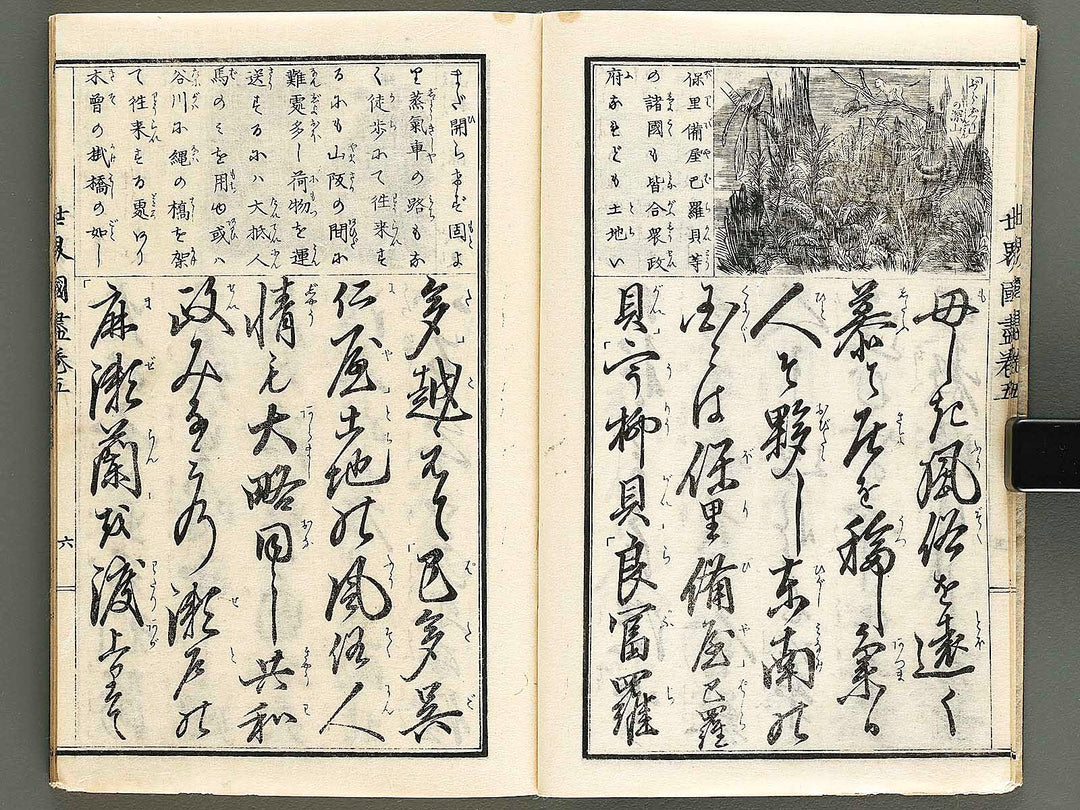 世界國盡卷五
保里備屋巴羅貝等
の諸國も皆合衆政
府なれども土地い
毋しき風俗を遠く
慕て居を移し集る
人ぞ夥し東南の
國々は保里備屋巴羅
貝宇柳貝良冨羅
まだ開らけず固よ
り蒸氣車の路もな
く徒歩にて往来す
るにも山阪の間に
難處多し荷物を運
送するにハ大抵人
馬のみを用也或ハ
谷川に縄の橋を架
て往来する處あり
木曾の掛橋の如し
多越えて巴多呉
仁屋土地の風俗人
情も大略同し共和
政みなみの瀬戸の
麻瀬蘭を渡
世界國盡卷五
六